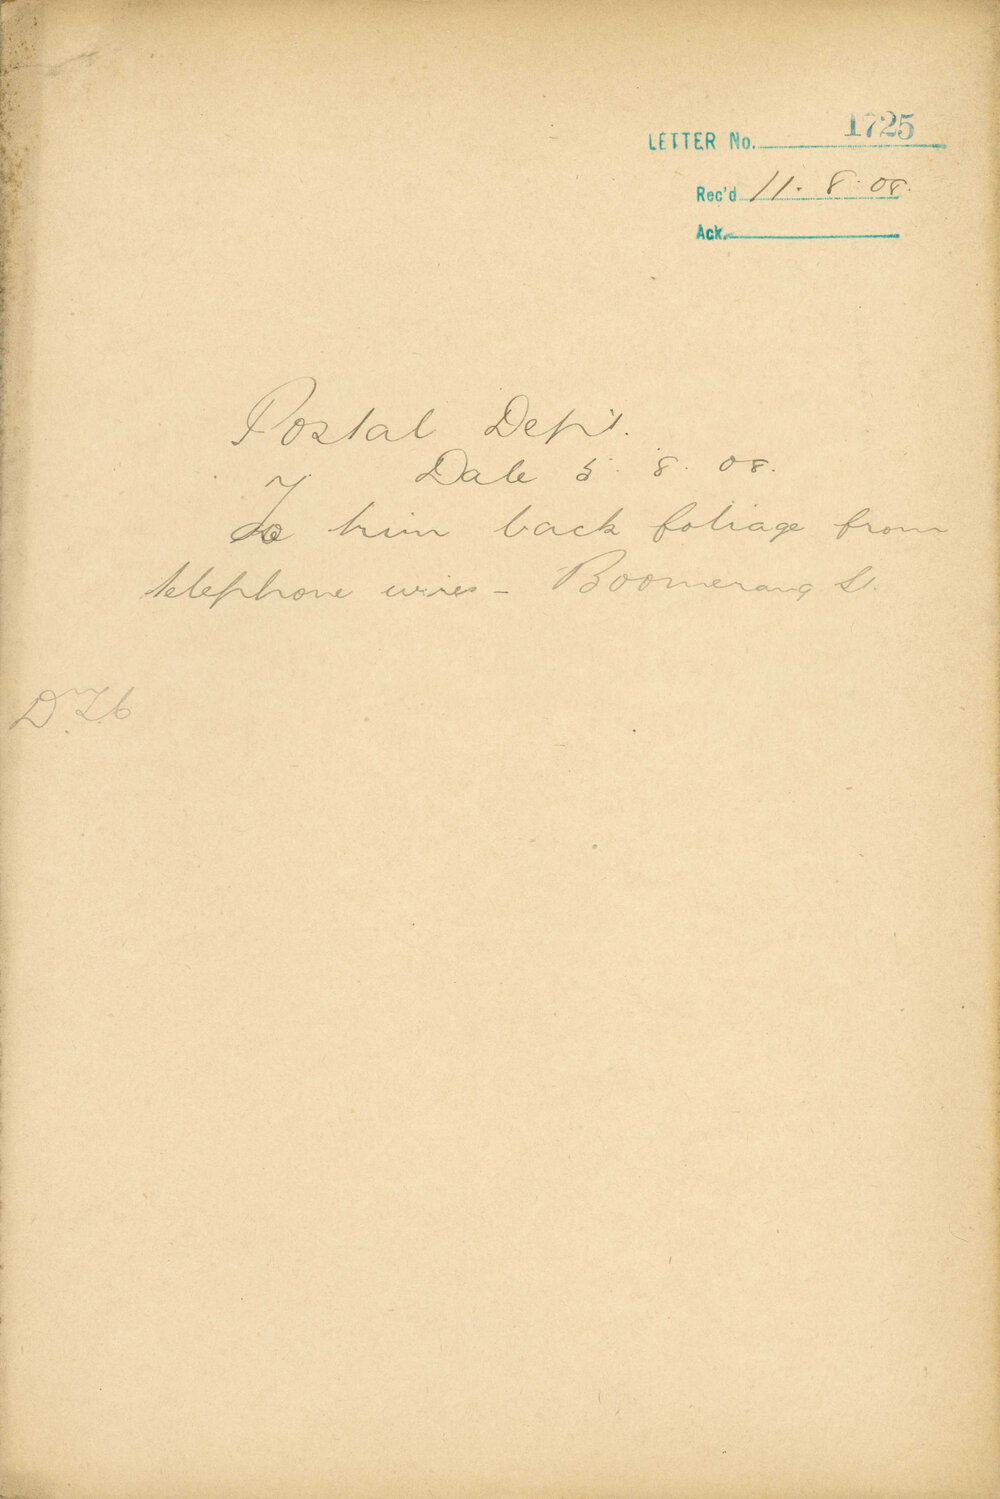 LETTER No. 1725
Rec'd 11. 8. 08.
Ack.
Postal Dep't.
Date 5. 8. 08.
To trim back foliage from
telephone wires - Boomerang St.